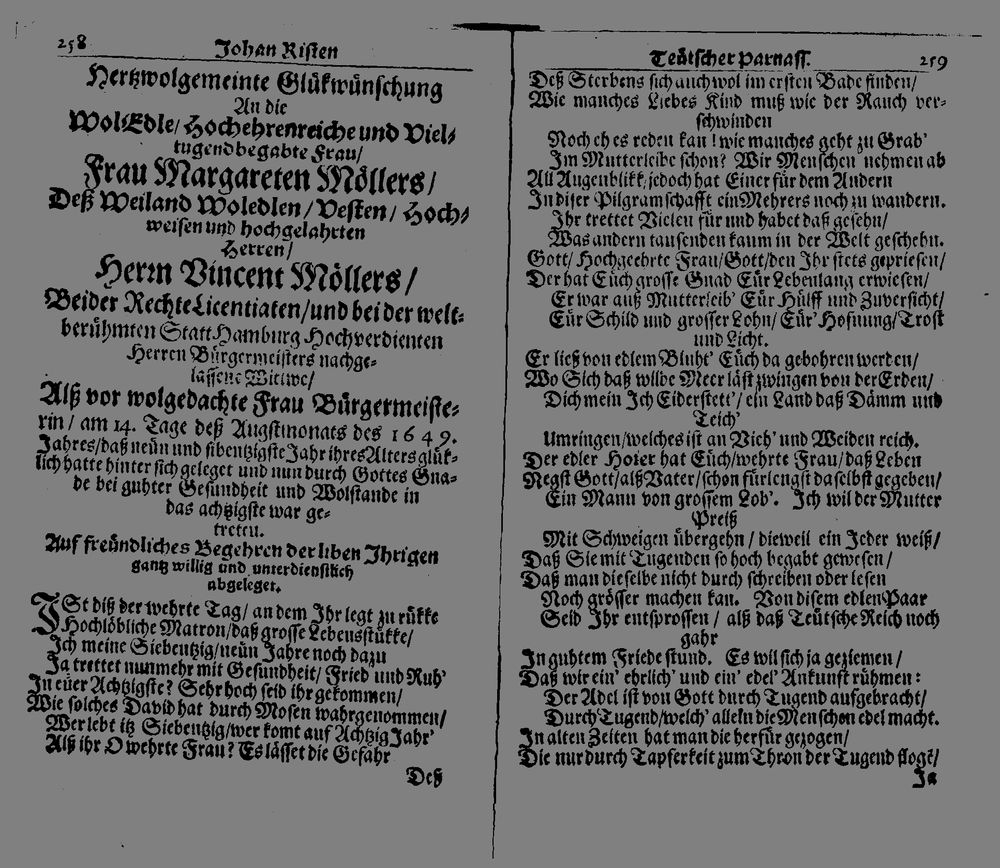 258 Johan Risten
Hertzwolgemeinte Glükwünschung
An die
WolEdle/ Hochehrenreiche und Viel-
tugendbegabte Frau/
Frau Margareten Möllers/
Deß Weiland Woledlen/ Vesten/ Hoch-
weisen und hochgelahrten
Herren/
Herrn Vincent Möllers/
Beider Rechte Licentiaten/ und bei der welt-
berühmten Statt Hamburg Hochverdienten
Herren Bürgermeisters nachge-
lassene Witiwe/
Alß vor wolgedachte Frau Bürgermeiste-
rin/ am 14. Tage deß Augstmonats des 1649.
Jahres/ daß neün und sibentzigste Jahr ihres Alters glük-
lich hatte hinter sich geleget und nun durch Gottes Gna-
de bei guhter Gesundheit und Wolstande in
das achtzigste war ge-
treten.
Auf freündliches Begehren der liben Ihrigen
gantz willig und unterdienstlich
abgeleget.
ISt diß der wehrte Tag/ an dem Ihr legt zu rükke
Hochlöbliche Matron/ daß grosse Lebensstükke/
Ich meine Siebentzig/ neün Jahre noch dazu
Ja trettet nunmehr mit Gesundheit/ Fried und Ruh'
In eüer Achtzigste? Sehr hoch seid ihr gekommen/
Wie solches David hat durch Mosen wahrgenommen/
Wer lebt itz Siebentzig/ wer komt auf Achtzig Jahr'
Alß ihr O wehrte Frau? Es lässet die Gefahr
Deß
Teütscher Parnass. 259
Deß Sterbens sich auch wol im ersten Bade finden/
Wie manches Liebes Kind muß wie der Rauch ver-
schwinden
Noch eh es reden kan! wie manches geht zu Grab'
Im Mutterleibe schon? Wir Menschen nehmen ab
All Augenblikk/ jedoch hat Einer für dem Andern
In diser Pilgramschafft ein Mehrers noch zu wandern.
Ihr trettet Vielen für und habet daß gesehn/
Was andern tausenden kaum in der Welt geschehn.
Gott/ Hochgeehrte Frau/ Gott/ den Ihr stets gepriesen/
Der hat Eüch grosse Gnad Eür Lebenlang erwiesen/
Er war auß Mutterleib' Eür Hülff und Zuversicht/
Eür Schild und grosser Lohn/ Eür' Hofnung/ Trost
und Licht.
Er ließ von edlem Bluht' Eüch da gebohren werden/
Wo Sich daß wilde Meer läst zwingen von der Erden/
Dich mein Ich Eiderstett'/ ein Land daß Dämm und
Teich'
Umringen/ welches ist an Vieh' und Weiden reich.
Der edler Hoier hat Eüch/ wehrte Frau/ daß Leben
Negst Gott/ alß Vater/ schon fürlengst daselbst gegeben/
Ein Mann von grossem Lob'. Ich wil der Mutter
Preiß
Mit Schweigen übergehn/ dieweil ein Jeder weiß/
Daß Sie mit Tugenden so hoch begabt gewesen/
Daß man dieselbe nicht durch schreiben oder lesen
Noch grösser machen kan. Von disem edlen Paar
Seid Ihr entsprossen/ alß daß Teütsche Reich noch
gahr
In guhtem Friede stund. Es wil sich ja geziemen/
Daß wir ein' ehrlich' und ein' edel' Ankunst rühmen:
Der Adel ist von Gott durch Tugend aufgebracht/
Durch Tugend/ welch' allein die Menschen edel macht.
In alten Zeiten hat man die herfür gezogen/
Die nur durch Tapferkeit zum Thron der Tugend flogẽ/
Ja